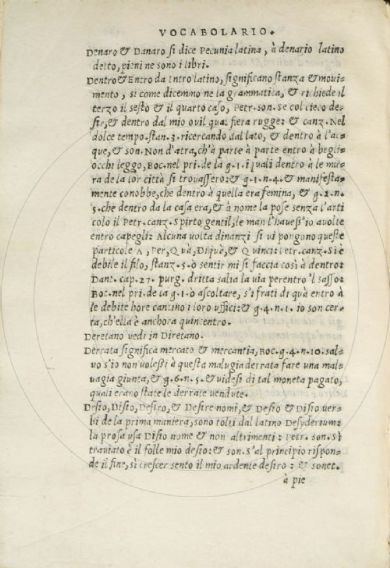 VOCABOLARIO.
Denaro & Danaro si dice Pecunia latina, à denario latino
detto, pieni ne sono i libri.
Dentro & Entro da Intro latino, significano stanza & moui-
mento, si come dicemmo ne la grammatica, & richiede il
terzo il sesto & il quarto caso, Petr. son. Se col cieco de-
sir, & dentro dal mio ouil qual fiera rugge? & canz. Nel
dolce tempo. stan. 3. ricercando dal lato, & dentro à l'ac-
que, & son. Non d'atra, ch'à parte à parte entro à begli
occhi leggo, Boc. nel pri. de la g. 1. i quali dentro à le mu-
ra de la lor città si trouassero: & g. 1. n. 4. & manifesta-
mente conobbe, che dentro à quella era femina, & g. 2. n.
5. che dentro da la casa era, & à nome la pose senza l'arti
colo il Petr. canz. Spirto gentil, le man l'hauess'io auolte
entro capegli: Alcuna volta dinanzi si vi pongono queste
particole A, Per, Quà, Di quà, & Quinci: Petr. canz. Si è
debile il filo, stanz. 5. ò sentir mi si faccia così à dentro:
Dant. cap. 27. purg. dritta salia la via perentro 'l sasso:
Boc. nel pri. de la g. 1. ò ascoltare, s'i frati di quà entro à
le debite hore cantino i loro vffici: & g. 4. n. 1. io son cer-
ta, ch'ella è anchora quincentro.
Deretano vedi in Diretano.
Derrata significa mercato & mercantia, Boc. g. 4. n. 10. sal-
uo s'io non volesti à questa maluagia derrata fare una mal-
uagia giunta, & g. 6. n. 3. & videsi di tal moneta pagato,
quali erano state le derrate vendute.
Desio, Disio, Desiro, & Desire nomi, & Desio & Disio ver-
bi de la prima maniera, sono tolti dal latino Desyderium:
la prosa usa Disio nome & non altrimenti: Petr. son. Si
trauiato è il folle mio desio: & son. S'al principio rispon-
de il fine, si crescer sento il mio ardente desiro: & sonet.
à pie